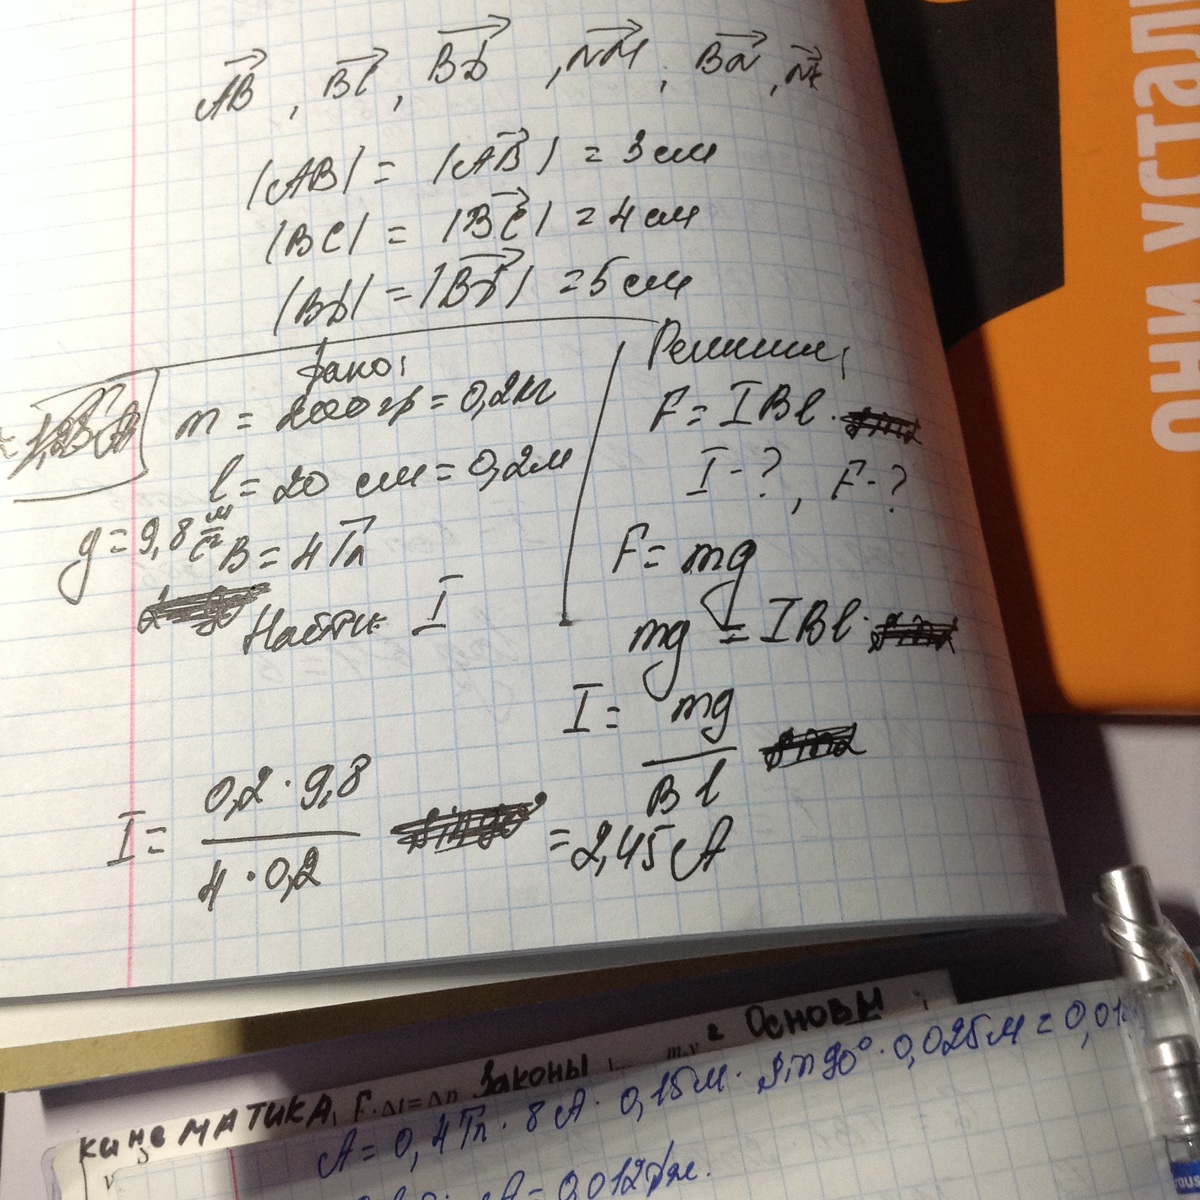 AB, Bl, BD, NM, BN,
|AB| = |AB| = 3 см
|BC| = |BC| = 4 см
|BD| = |BD| = 5 см
Дано:
m = 200 гр = 0,2 кг
l = 20 см = 0,2 м
g = 9,8 м/с² B = 4 Тл
Найти: I
Решение:
F = IBl ·
I - ?, F - ?
F = mg
mg = IBl ·
I = mg / Bl
I = 0,2 · 9,8 / 4 · 0,2 = 2,45 A
ОНИ УСТАЛ
кинематика F·Δt=Δp Законы m·v = Основы
A = 0,4 Тл · 8 А · 0,15 м · sin 90° · 0,025 м = 0,01
A = 0,012 Дж.